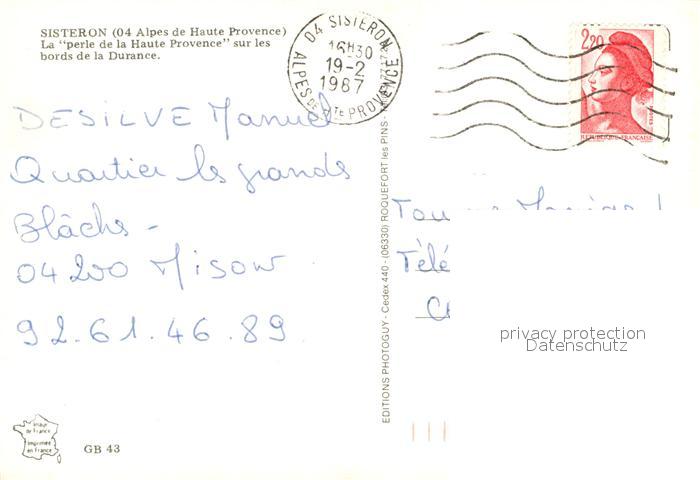 SISTERON (04 Alpes de Haute Provence)
La "perle de la Haute Provence" sur les
bords de la Durance.
04 SISTERON
16H30
19-2
1987
ALPES DE HTE PROVENCE
2,20
REPUBLIQUE FRANÇAISE
DESILVE Manuel
Quartier les grands
Blâchs -
04200 Mison
92.61.46.89
EDITIONS PHOTOGUY - Cedex 440 - (06330) ROQUEFORT les PINS -
Tou
Télé
privacy protection
Datenschutz
Image
de France
Imprimée
en France
GB 43